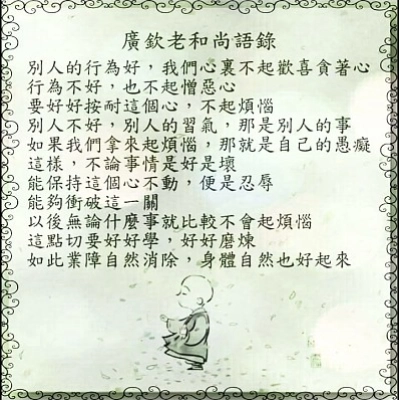 廣欽老和尚語錄
別人的行為好，我們心裏不起歡喜貪著心
行為不好，也不起憎惡心
要好好按耐這個心，不起煩惱
別人不好，別人的習氣，那是別人的事
如果我們拿來起煩惱，那就是自己的愚癡
這樣，不論事情是好是壞
能保持這個心不動，便是忍辱
能夠衝破這一關
以後無論什麼事就比較不會起煩惱
這點切要好好學，好好磨煉
如此業障自然消除，身體自然也好起來